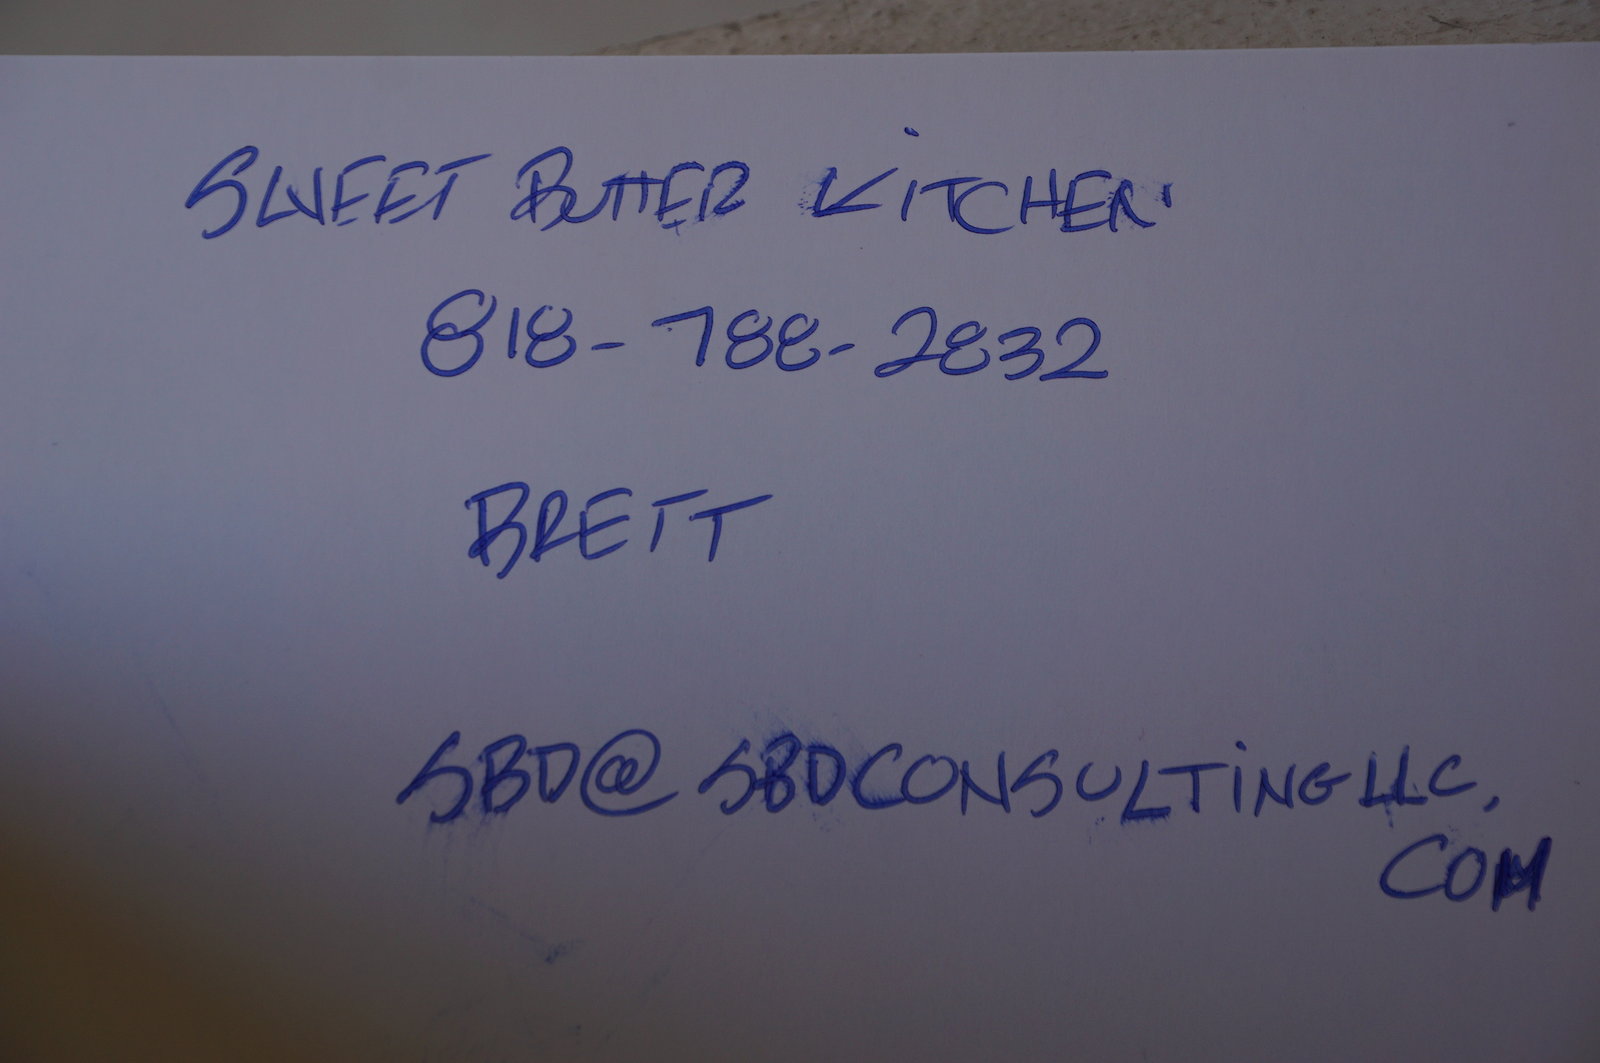 SWEET BUTTER KITCHEN
818-788-2832
BRETT
SBD@SBDCONSULTINGLLC.
COM